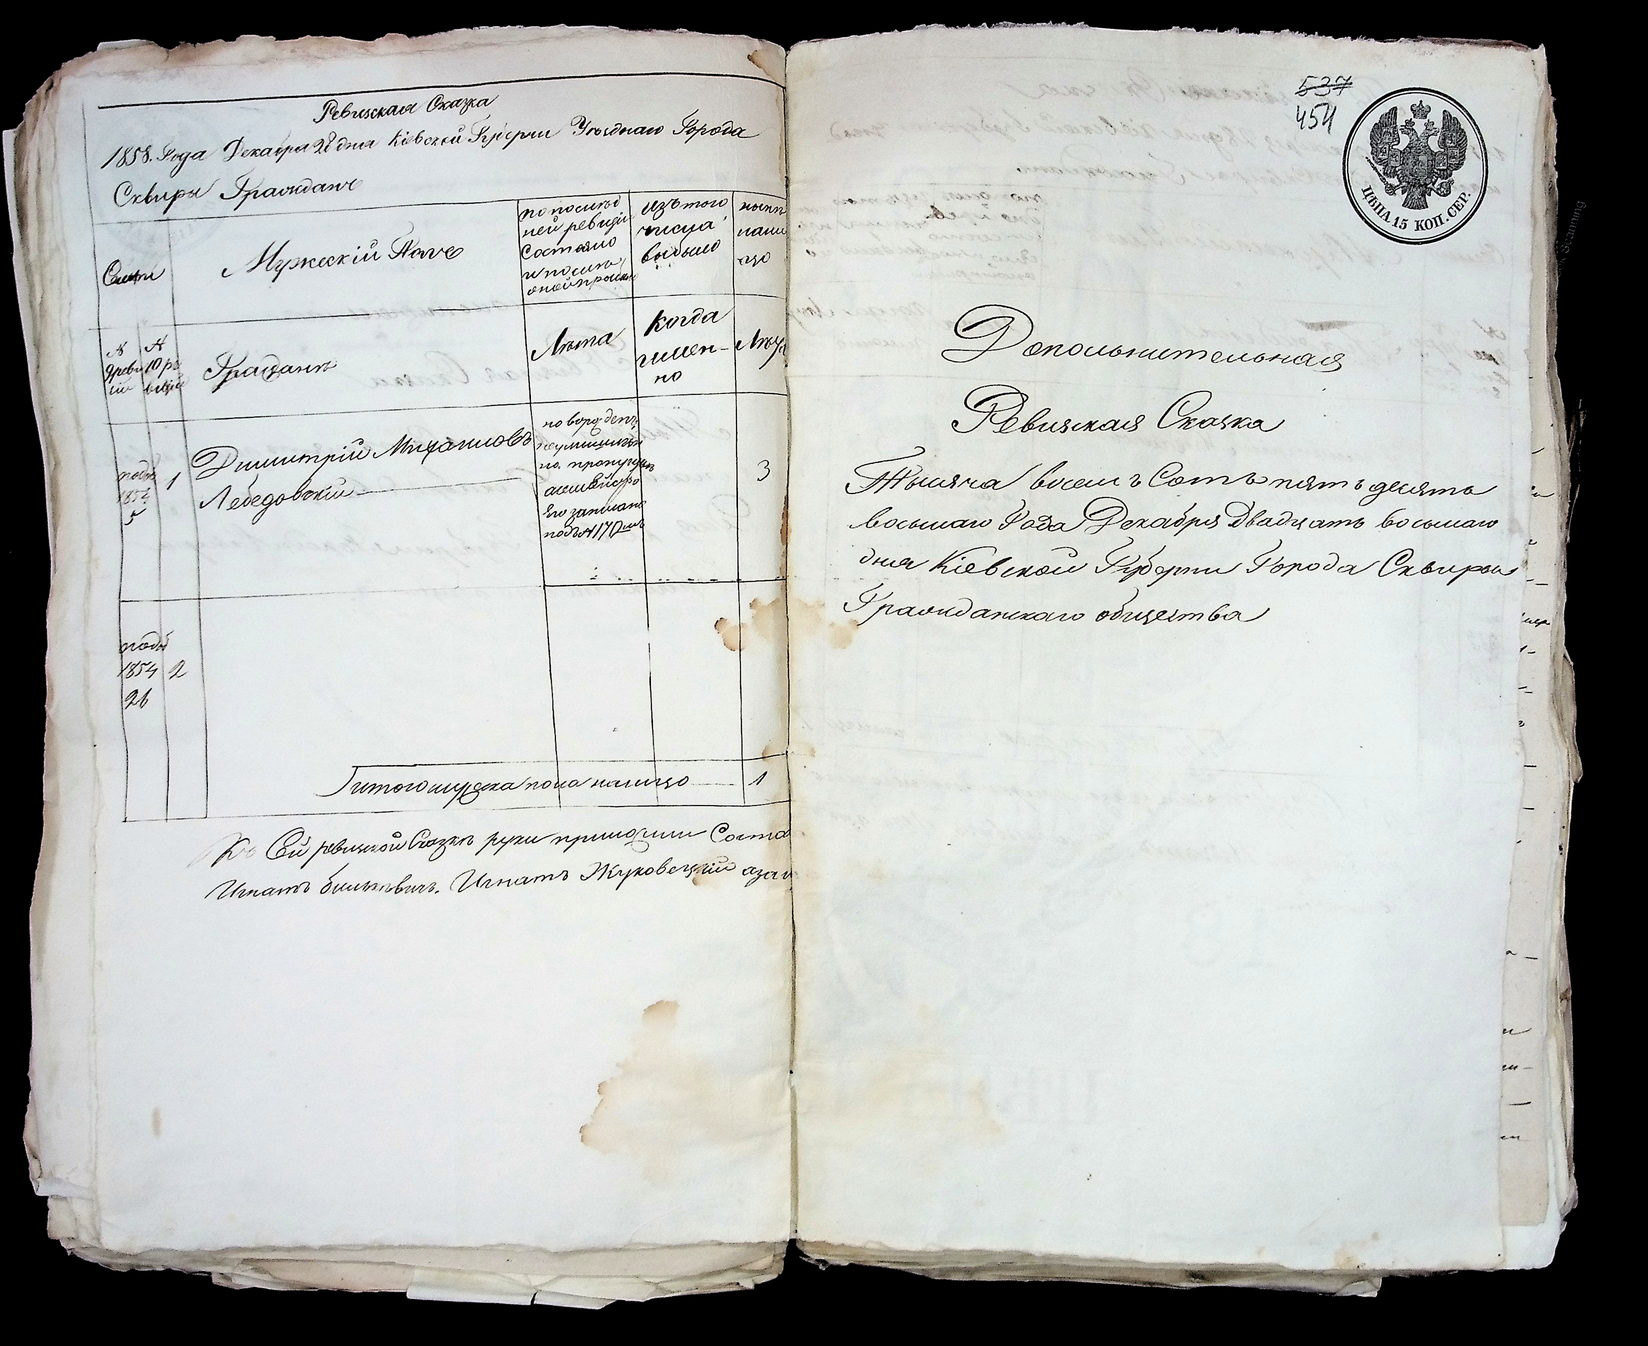 Ревизская Сказка
1858. Года Декабря 28 дня Кіевской Губерніи Уезднаго Города
Сквиры Граждан
Семьи
Мужескій Поле
по послед
ней ревизіи
состояло
и после
оной
изъ того
числа
выбыло
ныне
нали
цо
N
N
10 ре
Гражданъ
Лета
Когда
имен-
но
Лета
подъ
1854
5
1
Димитрій Михайловъ
Лебедовскій
новорожден
его записано
подъ N 170
3
подъ
1854
26
2
Итого мужеска пола налицо
1
Къ Сей ревизской Сказке руки приложили Соста
Игнатъ Игнатъ Жуковецкій аза
537
454
ЦѢНА 15 КОП. СЕР.
Допольнительная
Ревизская Сказка
Тысяча восемъ Сотъ пятъ десятъ
восьмаго Года Декабря Двадцатъ восьмаго
дня Кіевской Губерніи Города Сквиры
Гражданскаго общества